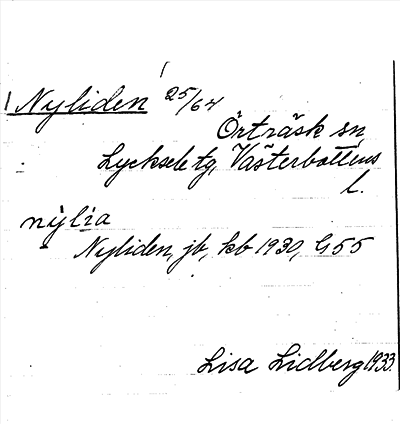 Nyliden 25/64
Örträsk sn,
Lycksele tg, Västerbottens
l.
nýlia
Nyliden, jb, kb 1930, G55
Lisa Lidberg 1933.